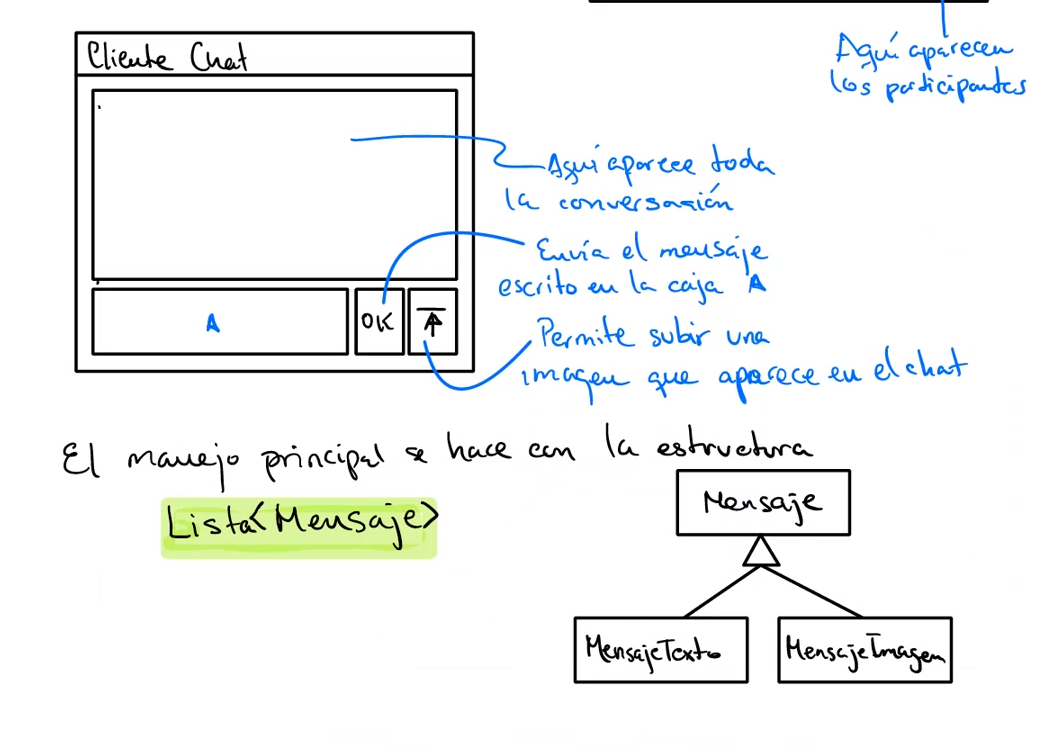 Aquí aparecen
los participantes
Cliente Chat
Aquí aparece toda
la conversación
Envía el mensaje
escrito en la caja A
A
OK
Permite subir una
imagen que aparece en el chat
El manejo principal se hace con la estructura
Lista<Mensaje>
Mensaje
MensajeTexto
MensajeImagen